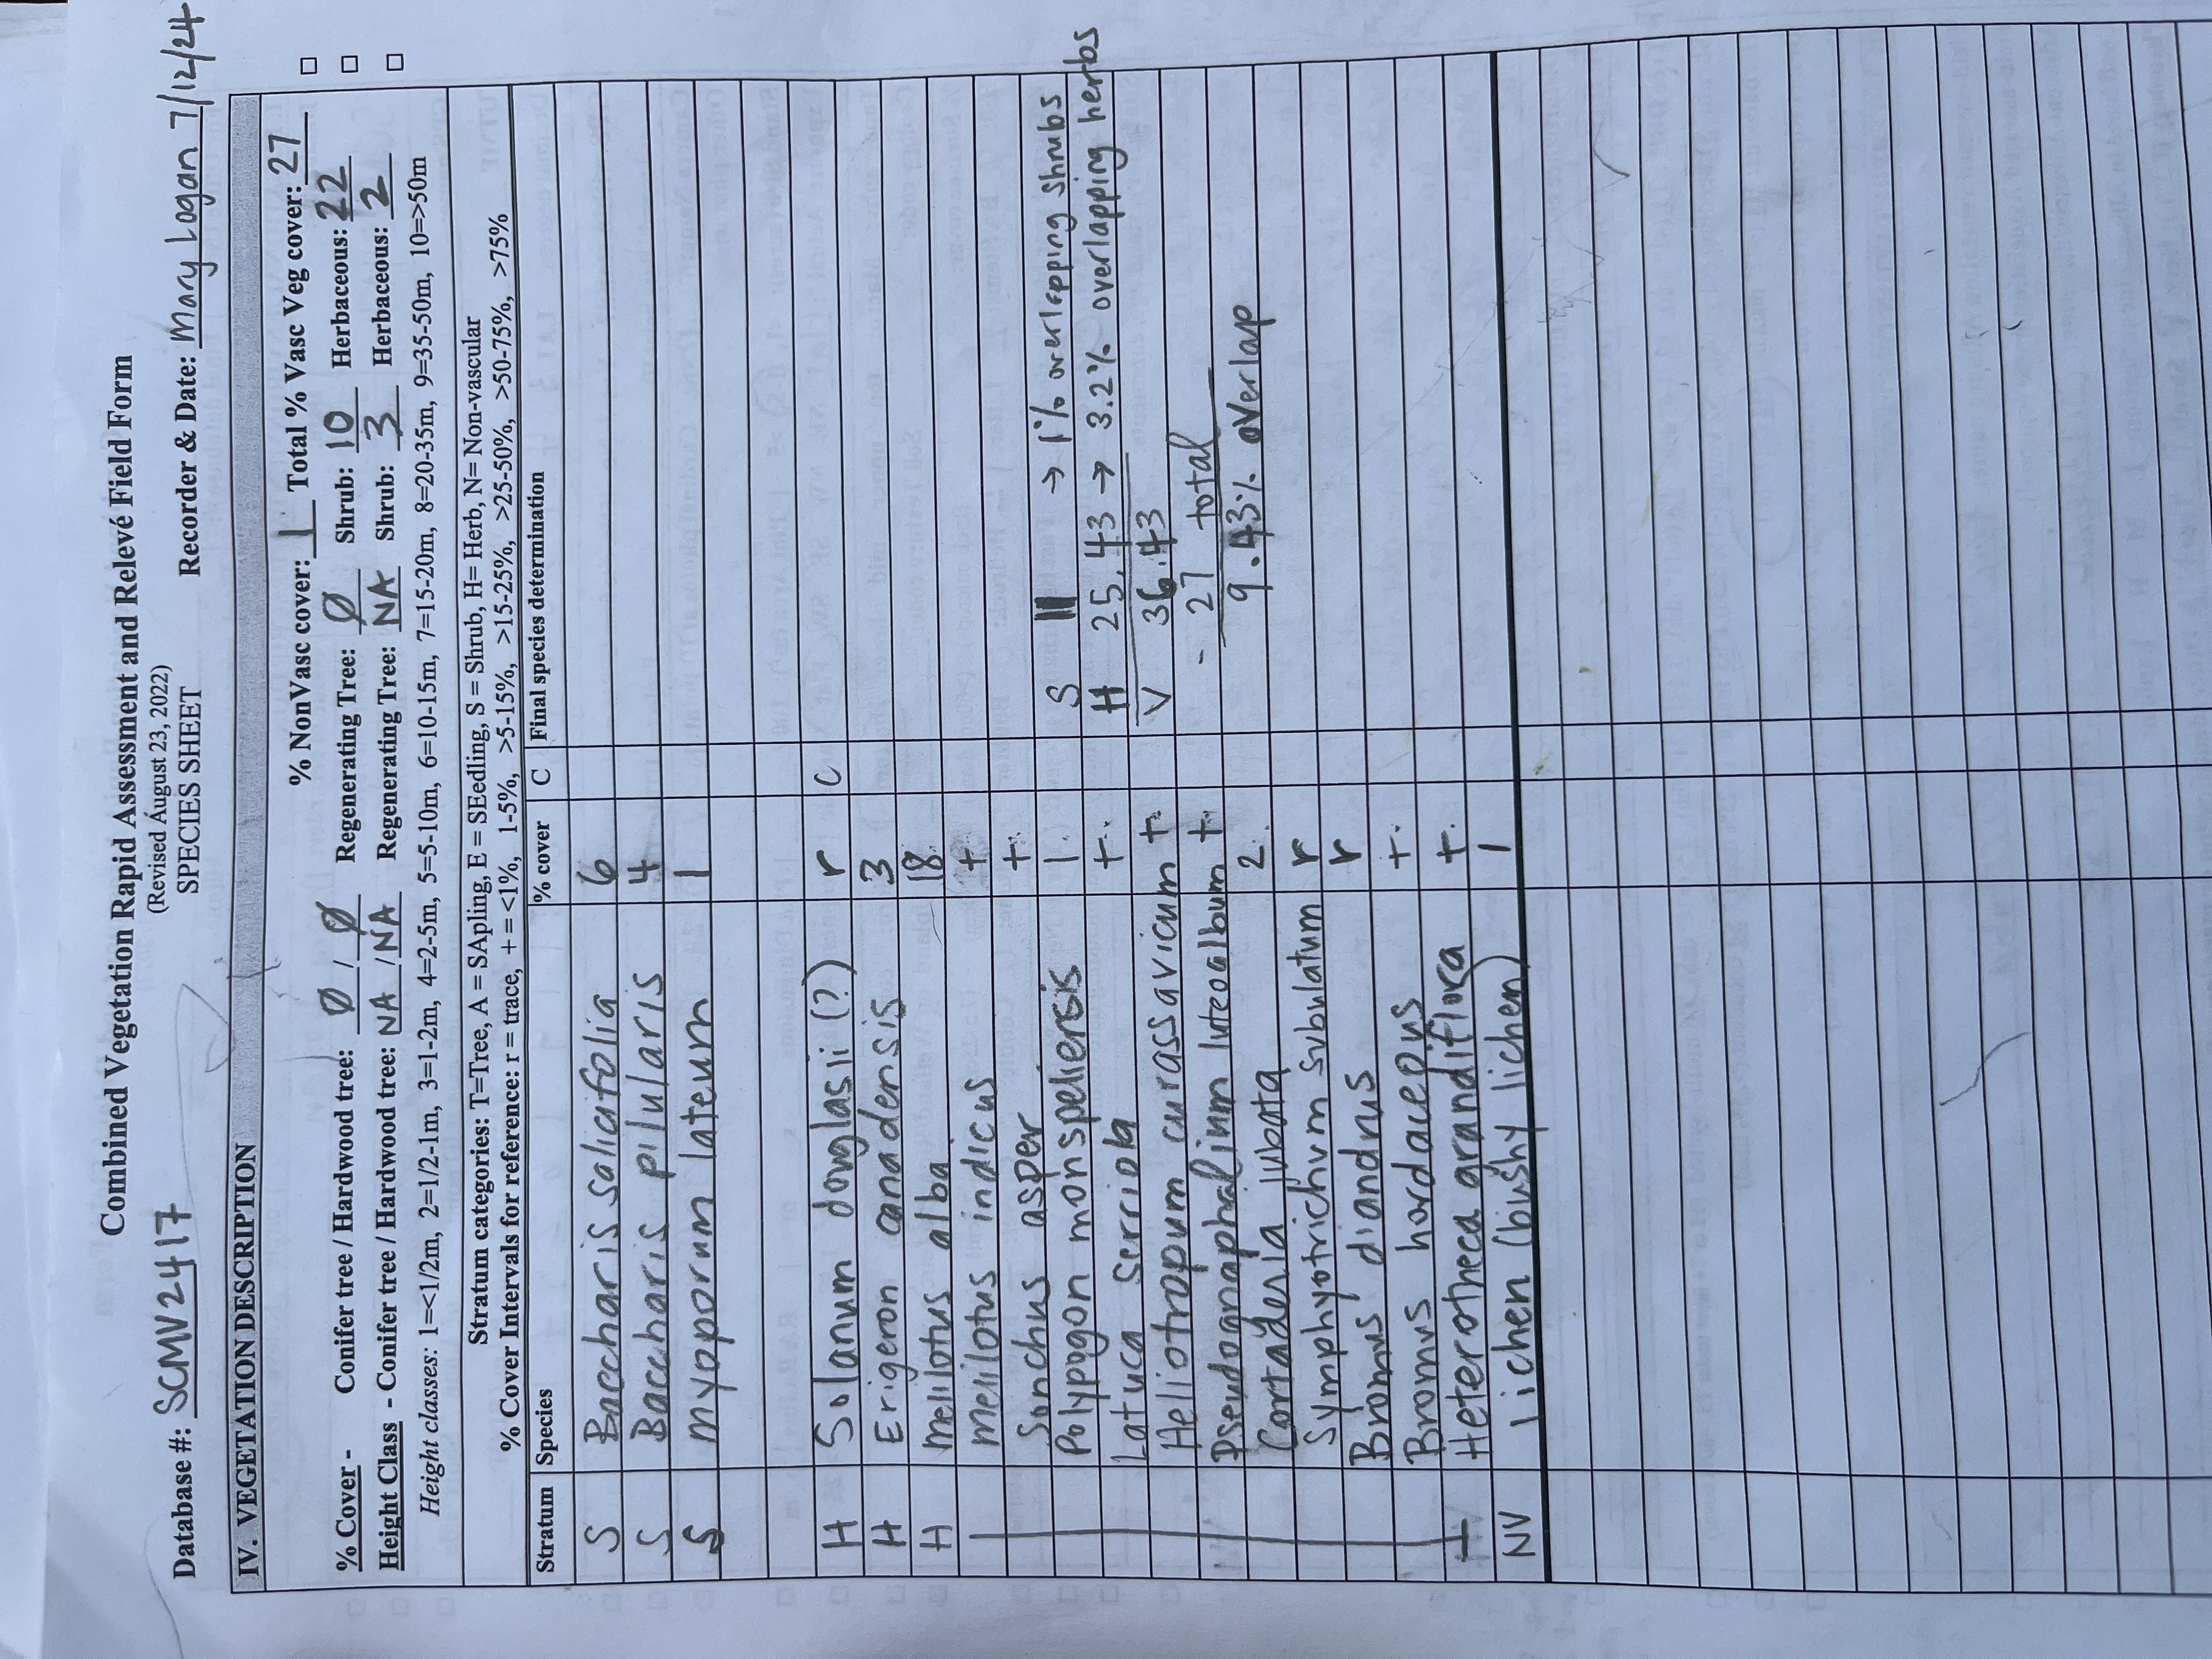 Combined Vegetation Rapid Assessment and Relevé Field Form
(Revised August 23, 2022)
Database #: SCMV2417 SPECIES SHEET Recorder & Date: Mary Logan 7/12/24
IV. VEGETATION DESCRIPTION
% NonVasc cover: 1 Total % Vasc Veg cover: 27 □
% Cover - Conifer tree / Hardwood tree: Ø / Ø Regenerating Tree: Ø Shrub: 10 Herbaceous: 22 □
Height Class - Conifer tree / Hardwood tree: NA / NA Regenerating Tree: NA Shrub: 3 Herbaceous: 2 □
Height classes: 1=<1/2m, 2=1/2-1m, 3=1-2m, 4=2-5m, 5=5-10m, 6=10-15m, 7=15-20m, 8=20-35m, 9=35-50m, 10=>50m
Stratum categories: T=Tree, A = SApling, E = SEedling, S = Shrub, H= Herb, N= Non-vascular
% Cover Intervals for reference: r = trace, + = <1%, 1-5%, >5-15%, >15-25%, >25-50%, >50-75%, >75%
Stratum Species % cover C Final species determination
S Baccharis salicifolia 6
S Baccharis pilularis 4
S myoporum lateum 1
H Solanum douglasii (?) r C
H Erigeron canadensis 3
H melilotus alba 18
melilotus indicus +
Sonchus asper +
Polypogon monspeliensis 1 S 11 → 1% overlapping shrubs
Latuca serriola + H 25.43 → 3.2% overlapping herbs
Heliotropum curassavicum + V 36.43
Pseudognaphalinum luteoalbum + - 27 total
Cortaderia jubata 2 9.43% overlap
Symphyotrichum subulatum r
Bromus diandrus r
Bromus hordacepus +
Heterotheca grandiflora +
NV lichen (bushy lichen) 1